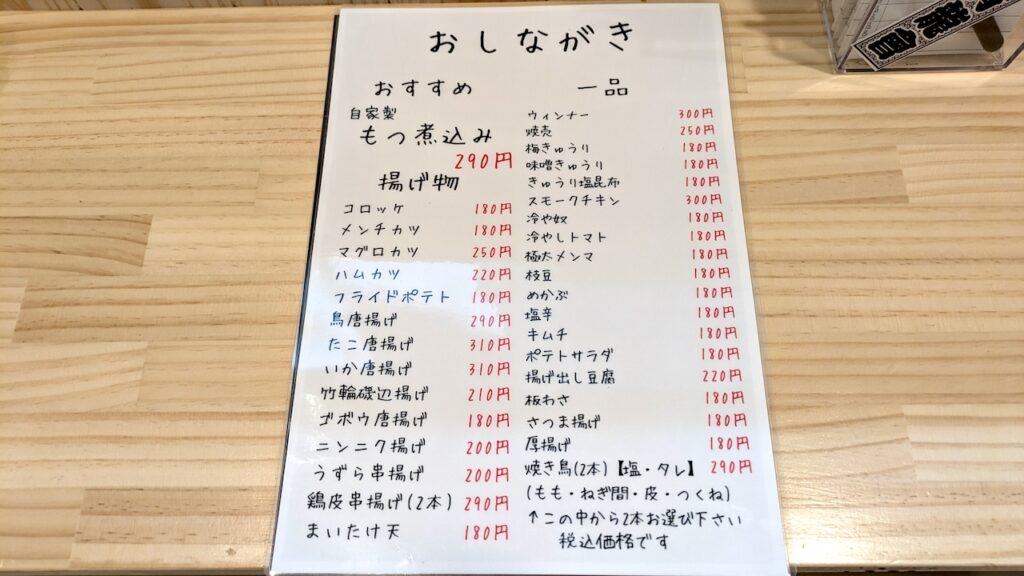 おしながき
おすすめ
自家製
もつ煮込み
290円
揚げ物
コロッケ 180円
メンチカツ 180円
マグロカツ 250円
ハムカツ 220円
フライドポテト 180円
鳥唐揚げ 290円
たこ唐揚げ 310円
いか唐揚げ 310円
竹輪磯辺揚げ 210円
ゴボウ唐揚げ 180円
ニンニク揚げ 200円
うずら串揚げ 200円
鶏皮串揚げ(2本) 290円
まいたけ天 180円
一品
ウィンナー 300円
焼売 250円
梅きゅうり 180円
味噌きゅうり 180円
きゅうり塩昆布 180円
スモークチキン 300円
冷や奴 180円
冷やしトマト 180円
極太メンマ 180円
枝豆 180円
めかぶ 180円
塩辛 180円
キムチ 180円
ポテトサラダ 180円
揚げ出し豆腐 220円
板わさ 180円
さつま揚げ 180円
厚揚げ 180円
焼き鳥(2本)【塩・タレ】 290円
(もも・ねぎ間・皮・つくね)
↑この中から2本お選び下さい
税込価格です